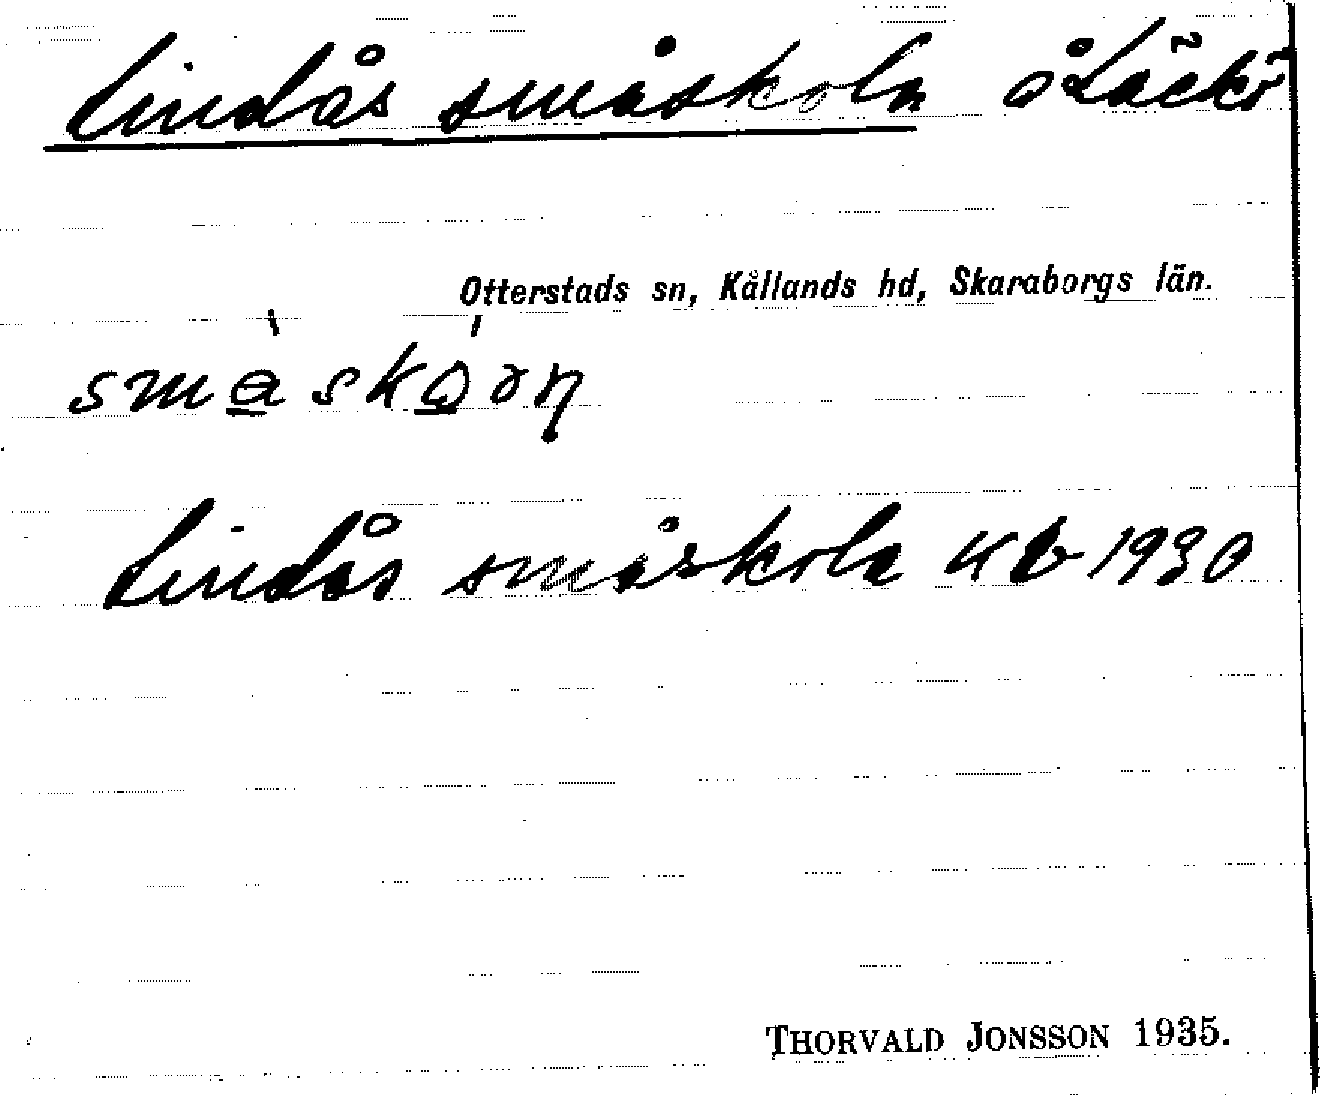 Lindås småskola å Läckö
Otterstads sn, Kållands hd, Skaraborgs län.
Lindås småskola Kb 1930
THORVALD JONSSON 1935.